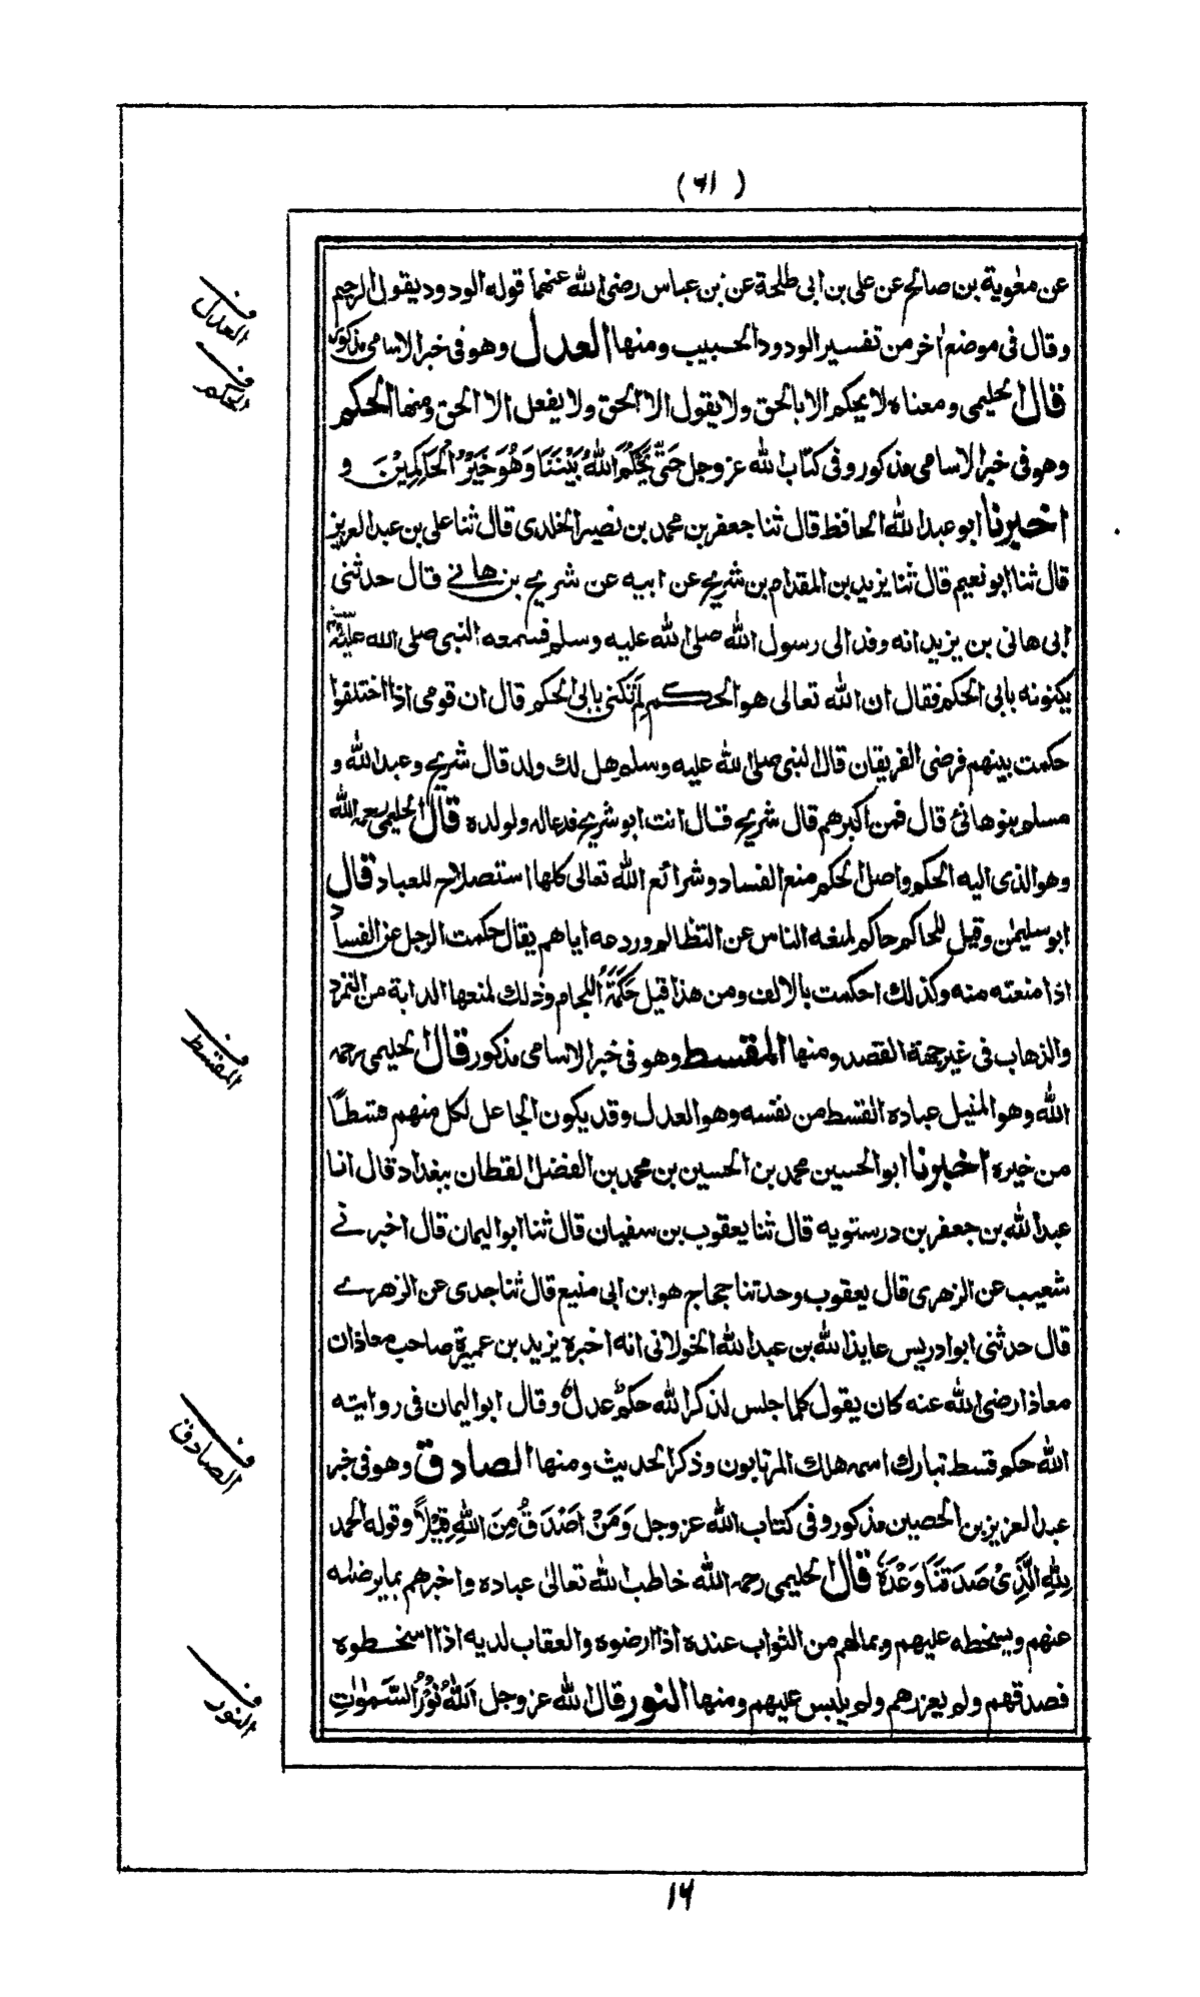 (٦١)
عن معٰوية بن صالح عن على بن ابى طلحة عن بن عباس رضى الله عنهما قوله الودود يقول الرحيم
وقال فى موضع اخر من تفسير الودود الحبيب ومنها العدل وهو فى خبر الاسامى مذكور
قال الحليمى ومعناه لا يحكم الا بالحق ولا يقول الا الحق ولا يفعل الا الحق ومنها الحكم
وهو فى خبر الاسامى مذكور وفى كتاب الله عز وجل حَتّٰى يَحْكُمَ اللهُ بَيْنَنَا وَهُوَ خَيْرُ الْحَاكِمِيْنَ و
اخبرنا ابو عبد الله الحافظ قال ثنا جعفر بن محمد بن نصير الخلدى قال ثنا على بن عبد العزيز
قال ثنا ابو نعيم قال ثنا يزيد بن المقدام بن شريح عن ابيه عن شريح بن هانى قال حدثنى
ابى هانى بن يزيد انه وفد الى رسول الله صلى الله عليه وسلم فسمعه النبى صلى الله عليه وسلم
يكنونه بابى الحكم فقال ان الله تعالى هو الحكم لِمَ تكنى بابى الحكم قال ان قومى اذا اختلفوا
حكمت بينهم فرضى الفريقان قال النبى صلى الله عليه وسلم هل لك ولد قال شريح وعبد الله و
مسلم بنو هانئ قال فمن اكبرهم قال شريح قال انت ابو شريح فدعا له ولولده قال الحليمى رحمه الله
وهو الذى اليه الحكم واصل الحكم منع الفساد وشرائع الله تعالى كلها استصلاح للعباد قال
ابو سليمٰن وقيل للحاكم حاكم لمنعه الناس عن التظالم وردعه اياهم يقال حكمت الرجل عن الفساد
اذا منعته منه وكذلك احكمت بالالف ومن هذا قيل حَكَمَةُ اللجام وذلك لمنعها الدابة من التمرد
والذهاب فى غير جهة القصد ومنها المقسط وهو فى خبر الاسامى مذكور قال الحليمى رحمه
الله وهو المنيل عباده القسط من نفسه وهو العدل وقد يكون الجاعل لكل منهم قسطًا
من خيره اخبرنا ابو الحسين محمد بن الحسين بن محمد بن الفضل القطان ببغداد قال انا
عبد الله بن جعفر بن درستويه قال ثنا يعقوب بن سفيان قال ثنا ابو اليمان قال اخبرنى
شعيب عن الزهرى قال يعقوب وحدثنا حجاج هو ابن ابى منيع قال ثنا جدى عن الزهرى
قال حدثنى ابو ادريس عايذ الله بن عبد الله الخولانى انه اخبره يزيد بن عميرة صاحب معاذ ان
معاذا رضى الله عنه كان يقول كلما جلس لذكر الله حكم عدل وقال ابو اليمان فى روايته
الله حكم قسط تبارك اسمه هلك المرتابون وذكر الحديث ومنها الصادق وهو فى خبر
عبد العزيز بن الحصين مذكور وفى كتاب الله عز وجل وَمَنْ اَصْدَقُ مِنَ اللهِ قِيْلاً وقوله الحمد
لِلّٰهِ الَّذِىْ صَدَقَنَا وَعْدَهٗ قال الحليمى رحمه الله خاطب الله تعالى عباده واخبرهم بما يرضيه
عنهم ويسخطه عليهم وبما لهم من الثواب عنده اذا ارضوه والعقاب لديه اذا اسخطوه
فصدقهم ولم يعزرهم ولم يلبس عليهم ومنها النور قال الله عز وجل اَللهُ نُوْرُ السَّمٰوٰتِ
ف العدل
ف الحكم
ف المقسط
ف الصادق
ف النور
١٦